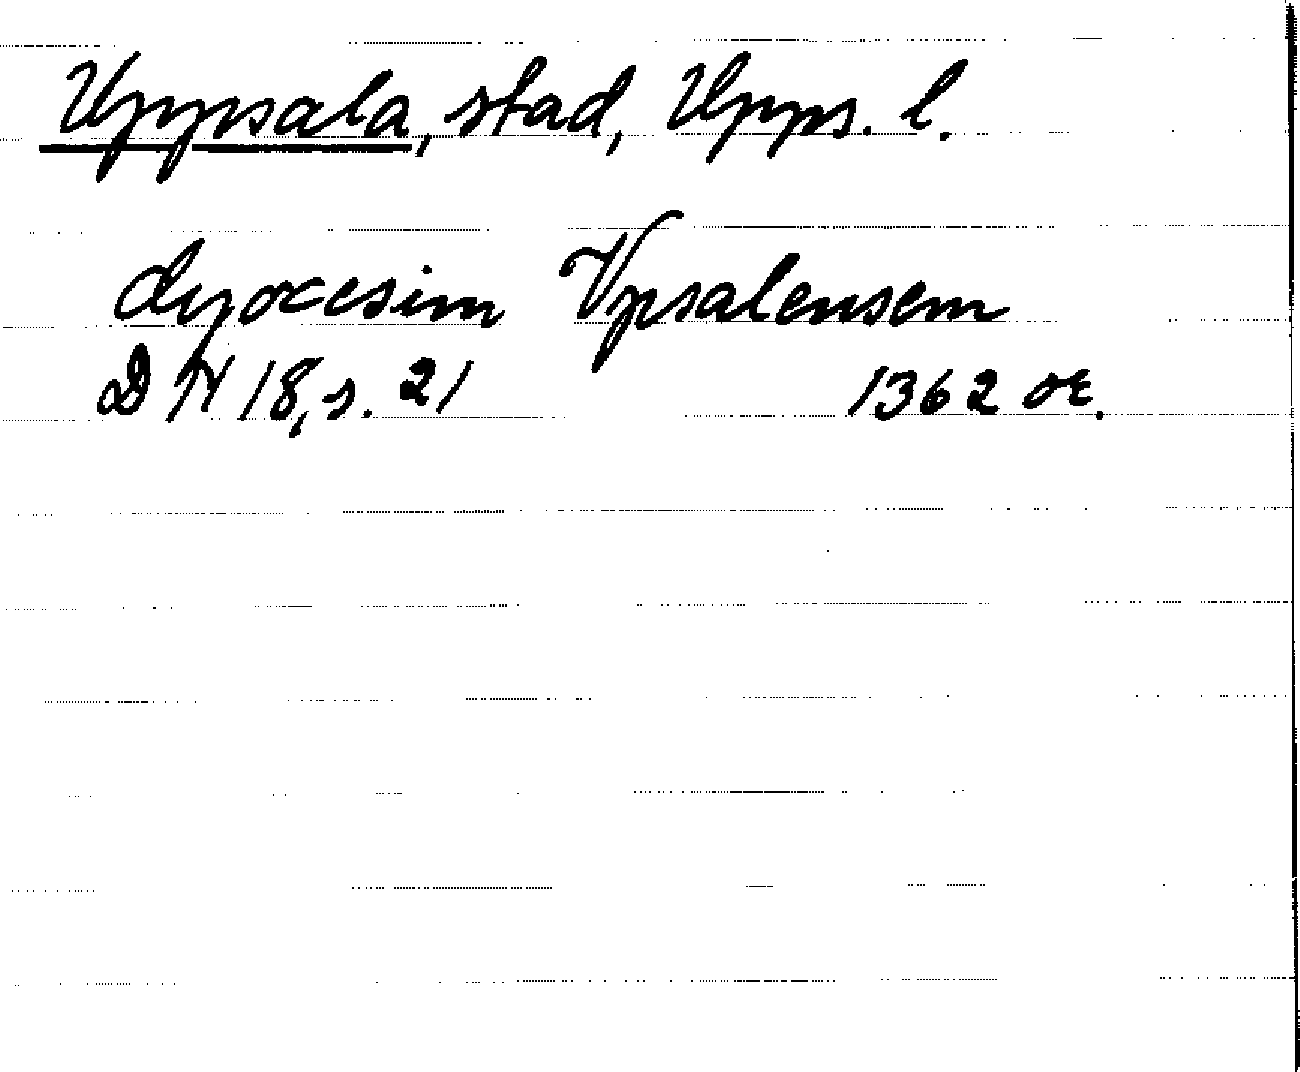 Uppsala, stad, Upps. l.
dyocesim Vpsalensem
DN 18, s. 21 1362 or.